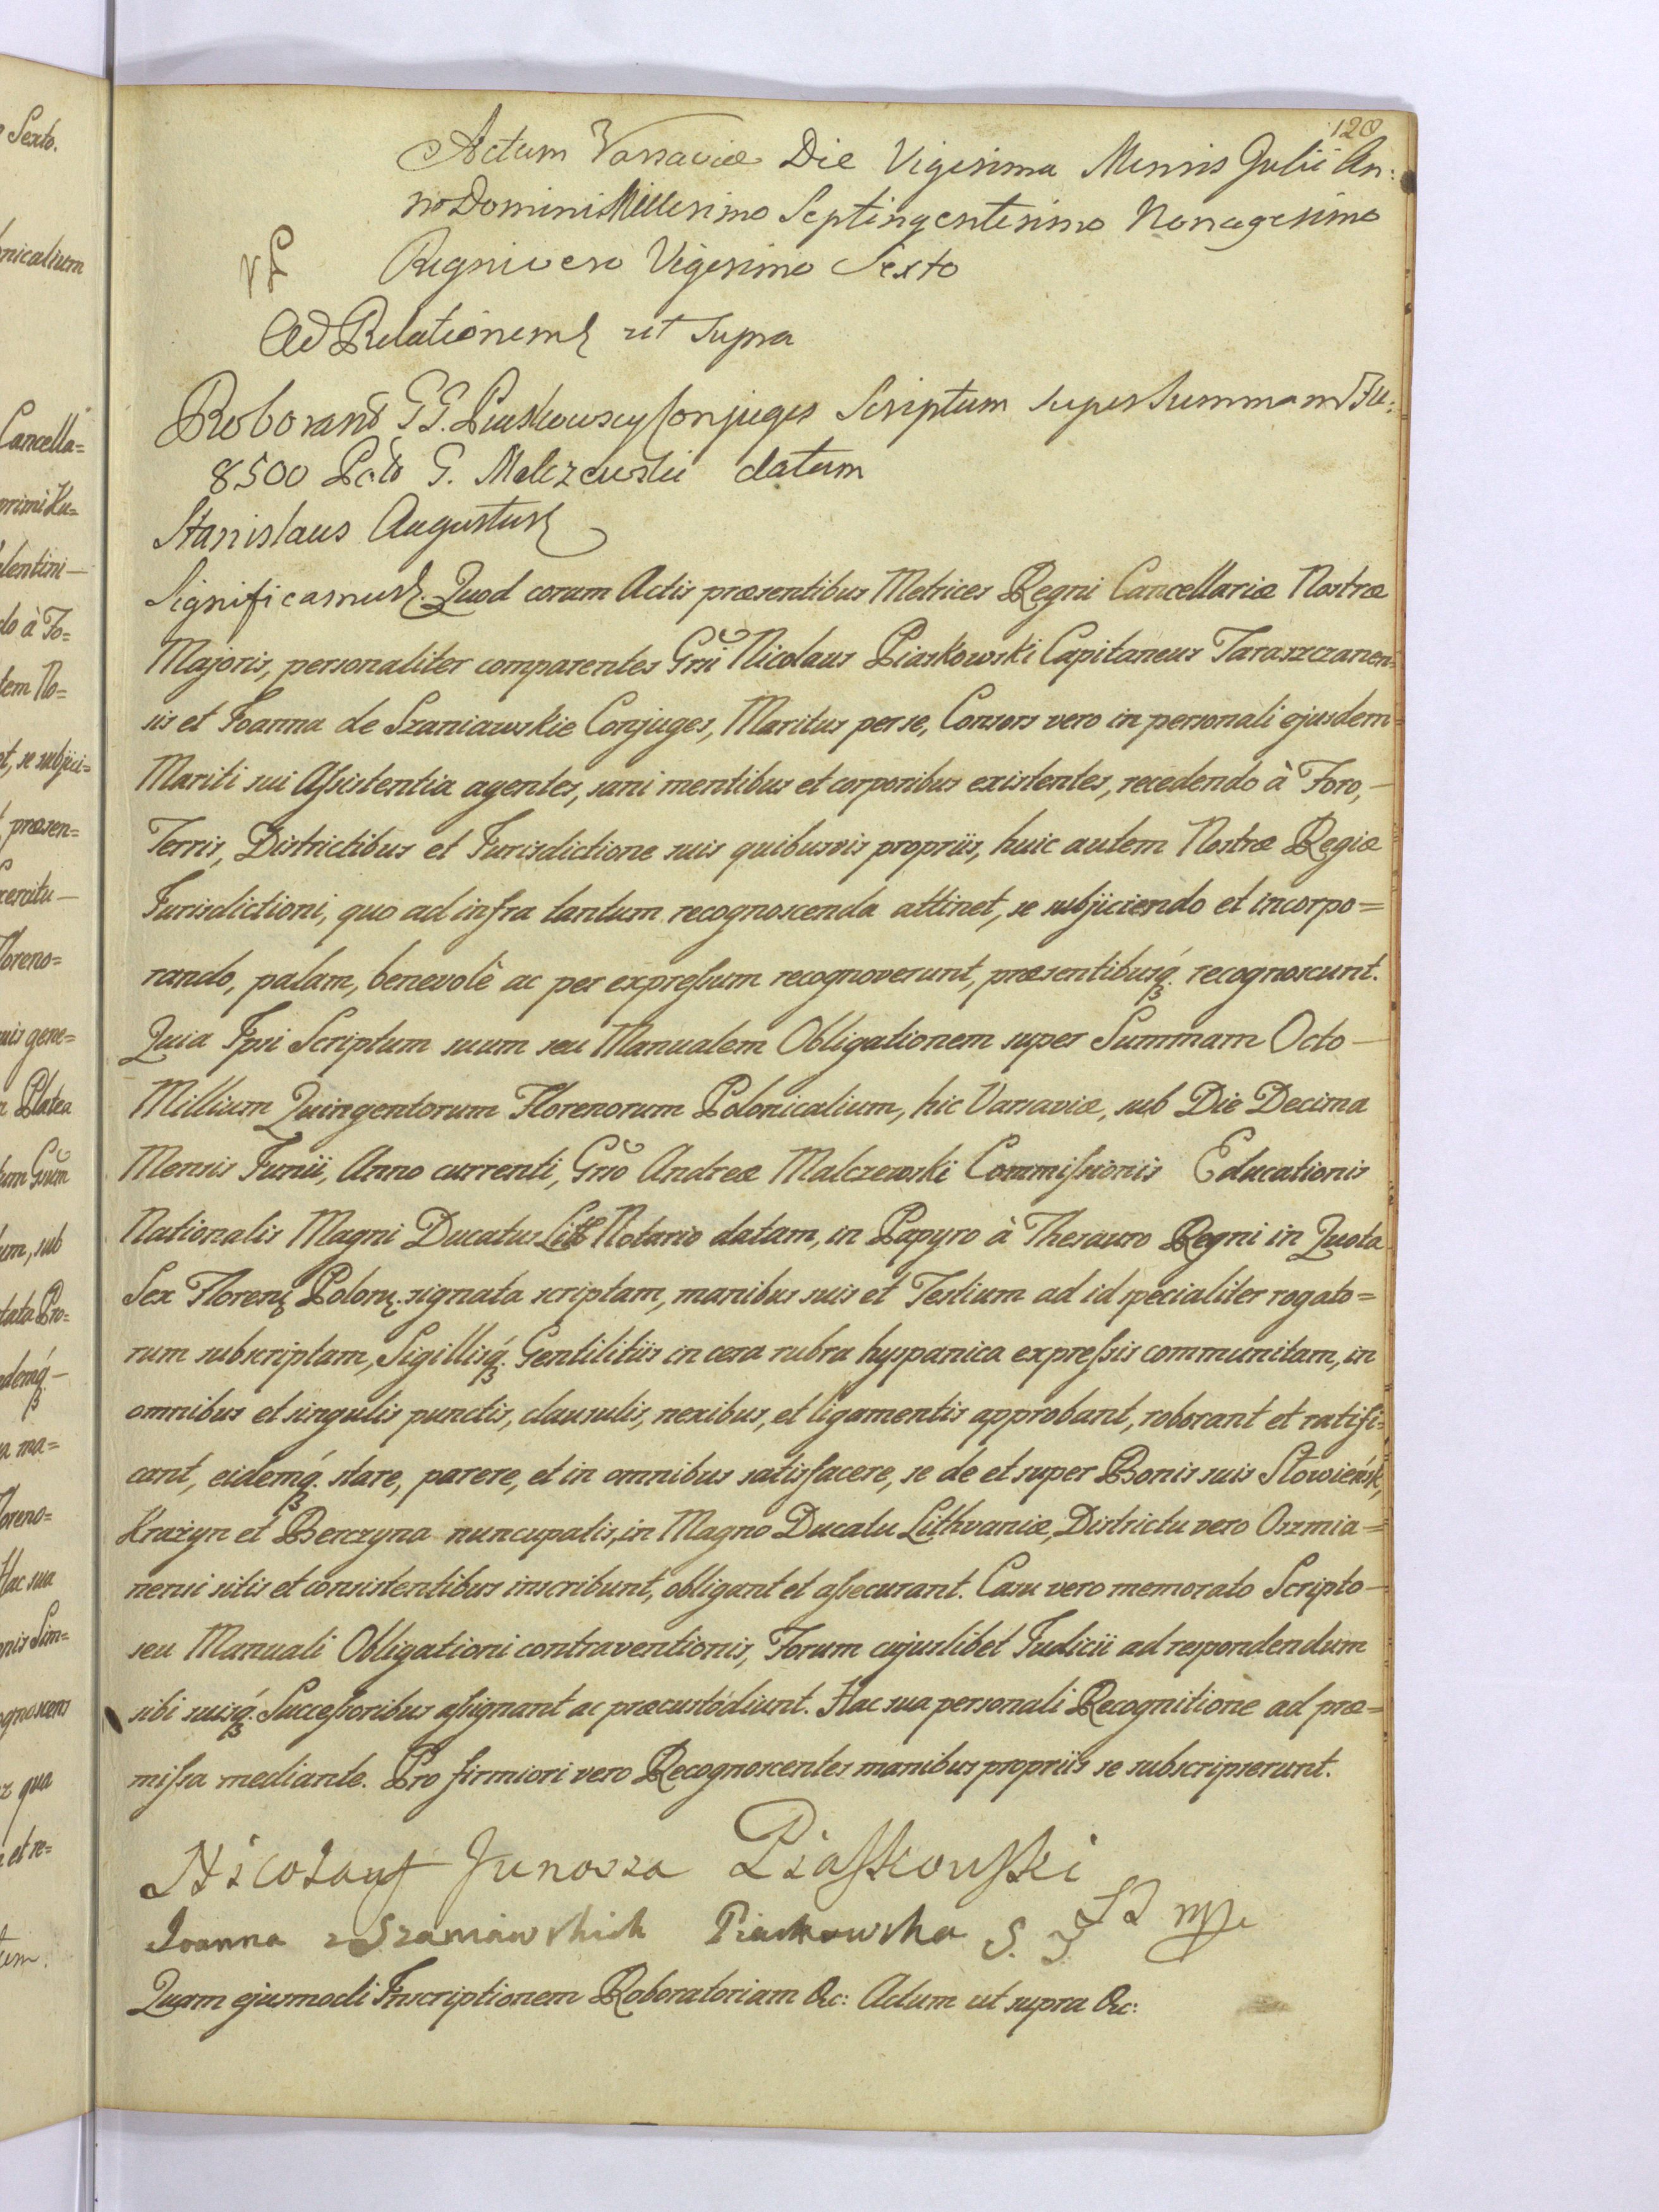 Sexto.
nicalium
Cancella=
primi Ku=
lentini
do à Fo=
tem No=
et, se subjici=
præsen=
xercitu
loreno=
uis gene=
Platea
um Grŭm
um, sub
tata Pro=
demq́
a ma=
loreno=
Hac sua
nis Sim=
gnoscens
qua
et re=
120
Actum Varsaviæ Die Vigesima Mensis Julii An:
no Domini Millesimo Septingentesimo Nonagesimo
Regni vero Vigesimo Sexto
Ad Relationem ut supra
Roborant GG. Piaskowscy Conjuges Scriptum super Summam
8500 G. Malczewski datum
Stanislaus Augustus
Significamus. Quod coram Actis præsentibus Metrices Regni Cancellariæ Nostræ
Majoris, personaliter comparentes Grsi Nicolaus Piaskowski Capitaneus Taraszczanen=
sis et Joanna de Szaniawskie Conjuges, Maritus per se, Consors vero in personali ejusdem
Mariti sui Assistentia agentes, sani mentibus et corporibus existentes, recedendo à Foro,
Terris, Districtibus et Jurisdictione suis quibusvis propriis, huic autem Nostræ Regiæ
Jurisdictioni, quo ad infra tantum recognoscenda attinet, se subjiciendo et incorpo=
rando, palam, benevolè ac per expressum recognoverunt, præsentibusq́. recognoscunt.
Quia Ipsi Scriptum suum seu Manualem Obligationem super Summam Octo
Millium Quingentorum Florenorum Polonicalium, hic Varsaviæ, sub Die Decima
Mensis Junii, Anno currenti, Grso Andreæ Malczewski Commissionis Educationis
Nationalis Magni Ducatus Litt Notario datam, in Papyro à Thesauro Regni in Quota
Sex Floren Polon. signata scriptam, manibus suis et Testium ad id specialiter rogato=
rum subscriptam, Sigillisq́. Gentilitiis in cera rubra hyspanica expressis communitam, in
omnibus et singulis punctis, clausulis, nexibus, et ligamentis approbant, roborant et ratifi=
cant, eidemq́. stare, parere, et in omnibus satisfacere, se de et super Bonis suis Słowieńsk,
Krażyn et Berczyna nuncupatis, in Magno Ducatu Lithvaniæ, Districtu vero Oszmia=
nensi sitis et consistentibus inscribunt, obligant et assecurant. Casu vero memorato Scripto
seu Manuali Obligationi contraventionis, Forum cujuslibet Judicii ad respondendum
sibi suisq́. Successoribus assignant ac præcustodiunt. Hac sua personali Recognitione ad præ=
missa mediante. Pro firmiori vero Recognoscentes manibus propriis se subscripserunt.
Nicolaus Junosza Piaskowski
Joanna z Szaniawskich Piaskowska S. T.
Quam ejusmodi Inscriptionem Roboratoriam &c: Actum ut supra &c: